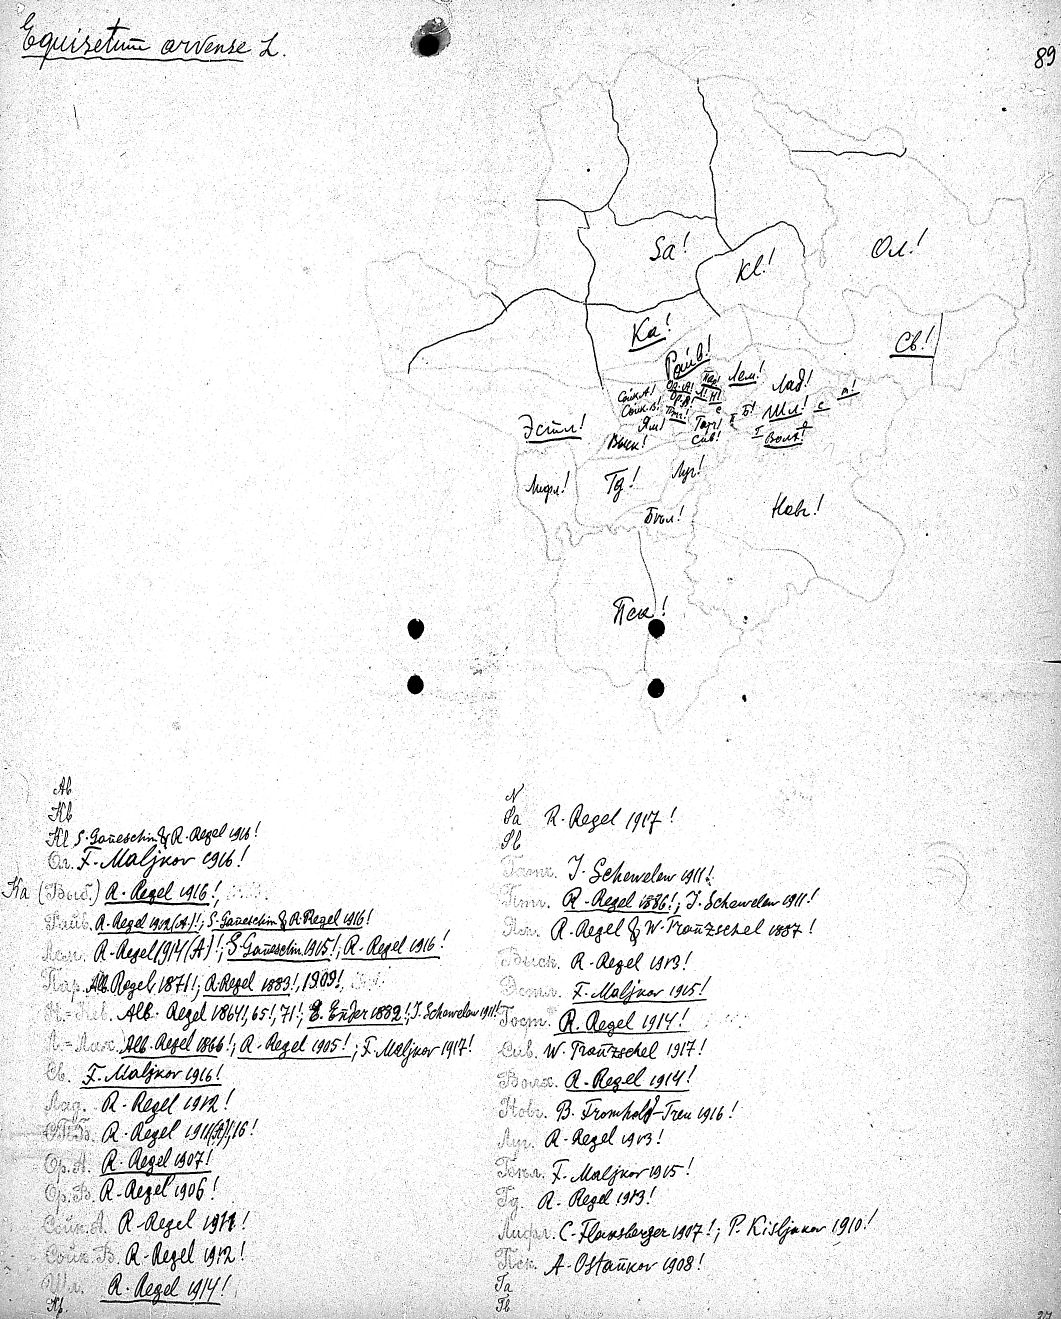 Equisetum arvense L.
89
Sa!
Kl!
Ол!
Ка!
Св!
Райв!
Лем!
Лад!
Сойк.А!
Сойк.В!
Ор.В!
Шл!
Ям!
Б!
с
Эстл!
Выск!
Сив!
Волх!
Лифл!
Гд!
Луг!
Бѣл!
Новг!
Пск!
Ab
Kb
Kl S. Ganeschin & R. Regel 1916!
Ол. F. Maljkov 1916!
Ка (Выб.) R. Regel 1916!,
Райв. R. Regel 1912(A)!; S. Ganeschin & R. Regel 1916!
Лем. R. Regel 1914(A)!; S. Ganeschin 1915!, R. Regel 1916!
Пар. Alb. Regel 1871!; R. Regel 1883!, 1909!,
Н.=Нев. Alb. Regel 1864!, 65!, 71!; E. Ender 1882!; I. Schewelew 1911!
Л.=Лах. Alb. Regel 1866!; R. Regel 1905!; F. Maljkov 1917!
Св. F. Maljkov 1916!
Лад. R. Regel 1912!
СПБ. R. Regel 16!
Ор.А. R. Regel 1907!
Ор.В. R. Regel 1906!
Сойк.А. R. Regel 1911!
Сойк.В. R. Regel 1912!
Шл. R. Regel 1914!
Кр.
N
Sa R. Regel 1917!
Sb
I. Schewelew 1911!
Птг. R. Regel 1886!; I. Schewelew 1911!
Ям. R. Regel & W. Tranzschel 1887!
Выск. R. Regel 1913!
Эстл. F. Maljkov 1915!
Тосн. R. Regel 1914!
Сив. W. Tranzschel 1917!
Волх. R. Regel 1914!
Новг. B. Fromhold-Treu 1916!
Луг. R. Regel 1913!
Бѣл. F. Maljkov 1915!
Гд. R. Regel 1913!
Лифл. C. Flaksberger 1907!; P. Kisljakov 1910!
Пск. A. Ostankov 1908!
Ta
Tb